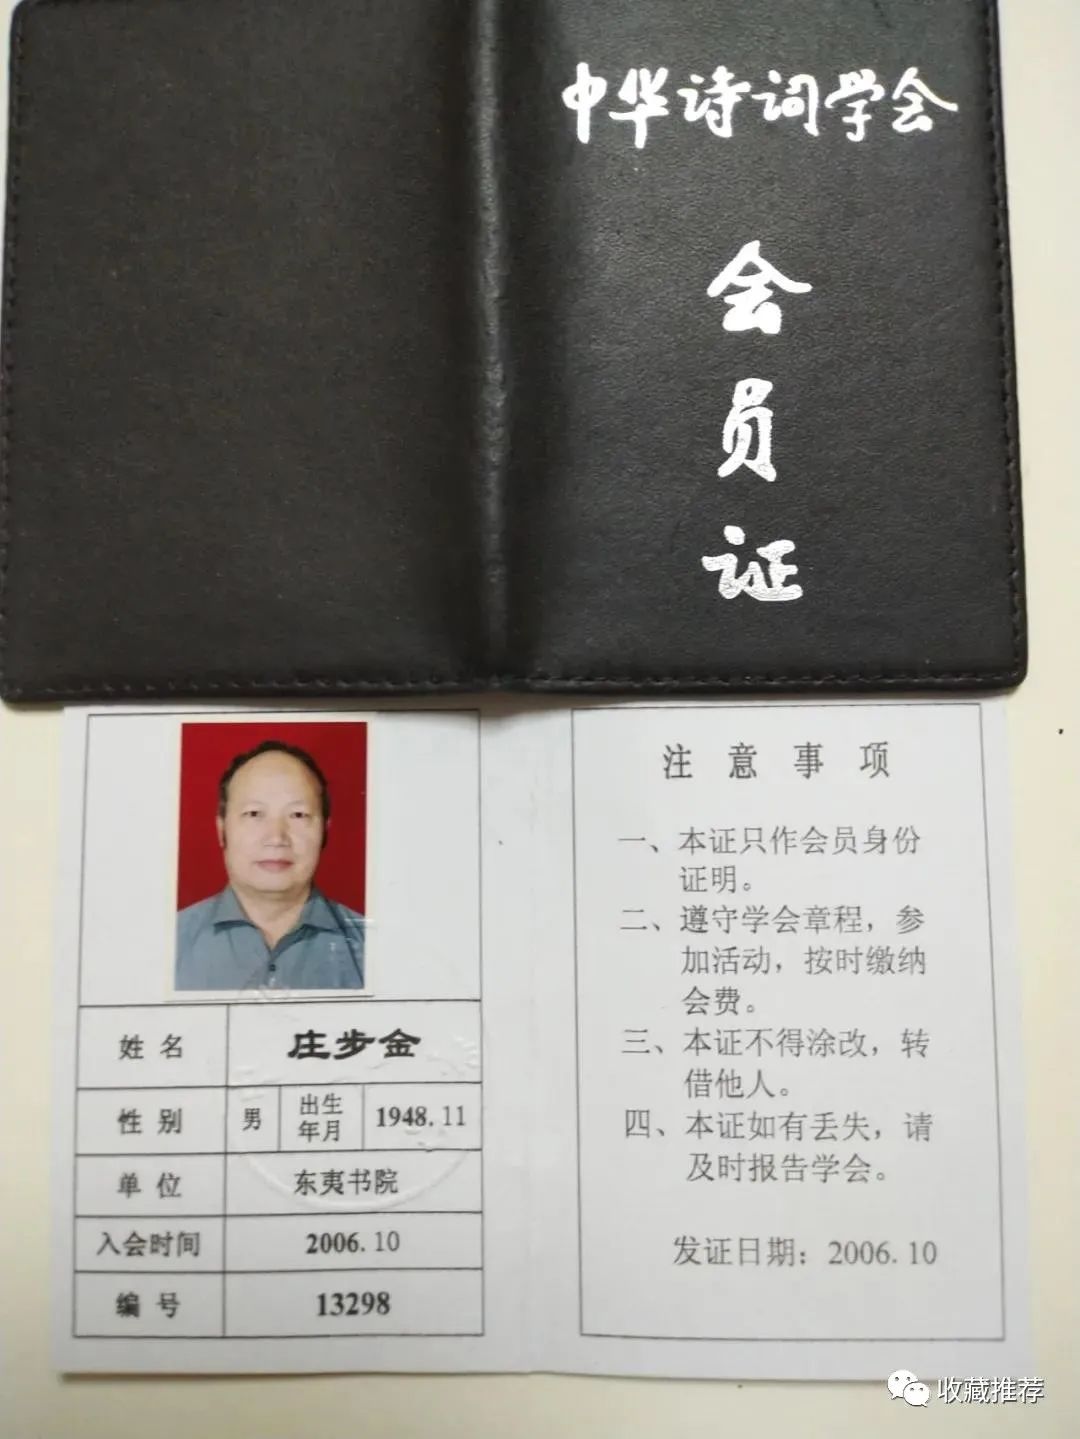 中华诗词学会
会
员
证
姓 名 庄步金
性 别 男 出生年月 1948.11
单 位 东夷书院
入会时间 2006.10
编 号 13298
注 意 事 项
一、本证只作会员身份
证明。
二、遵守学会章程，参
加活动，按时缴纳
会费。
三、本证不得涂改，转
借他人。
四、本证如有丢失，请
及时报告学会。
发证日期：2006.10
收藏推荐